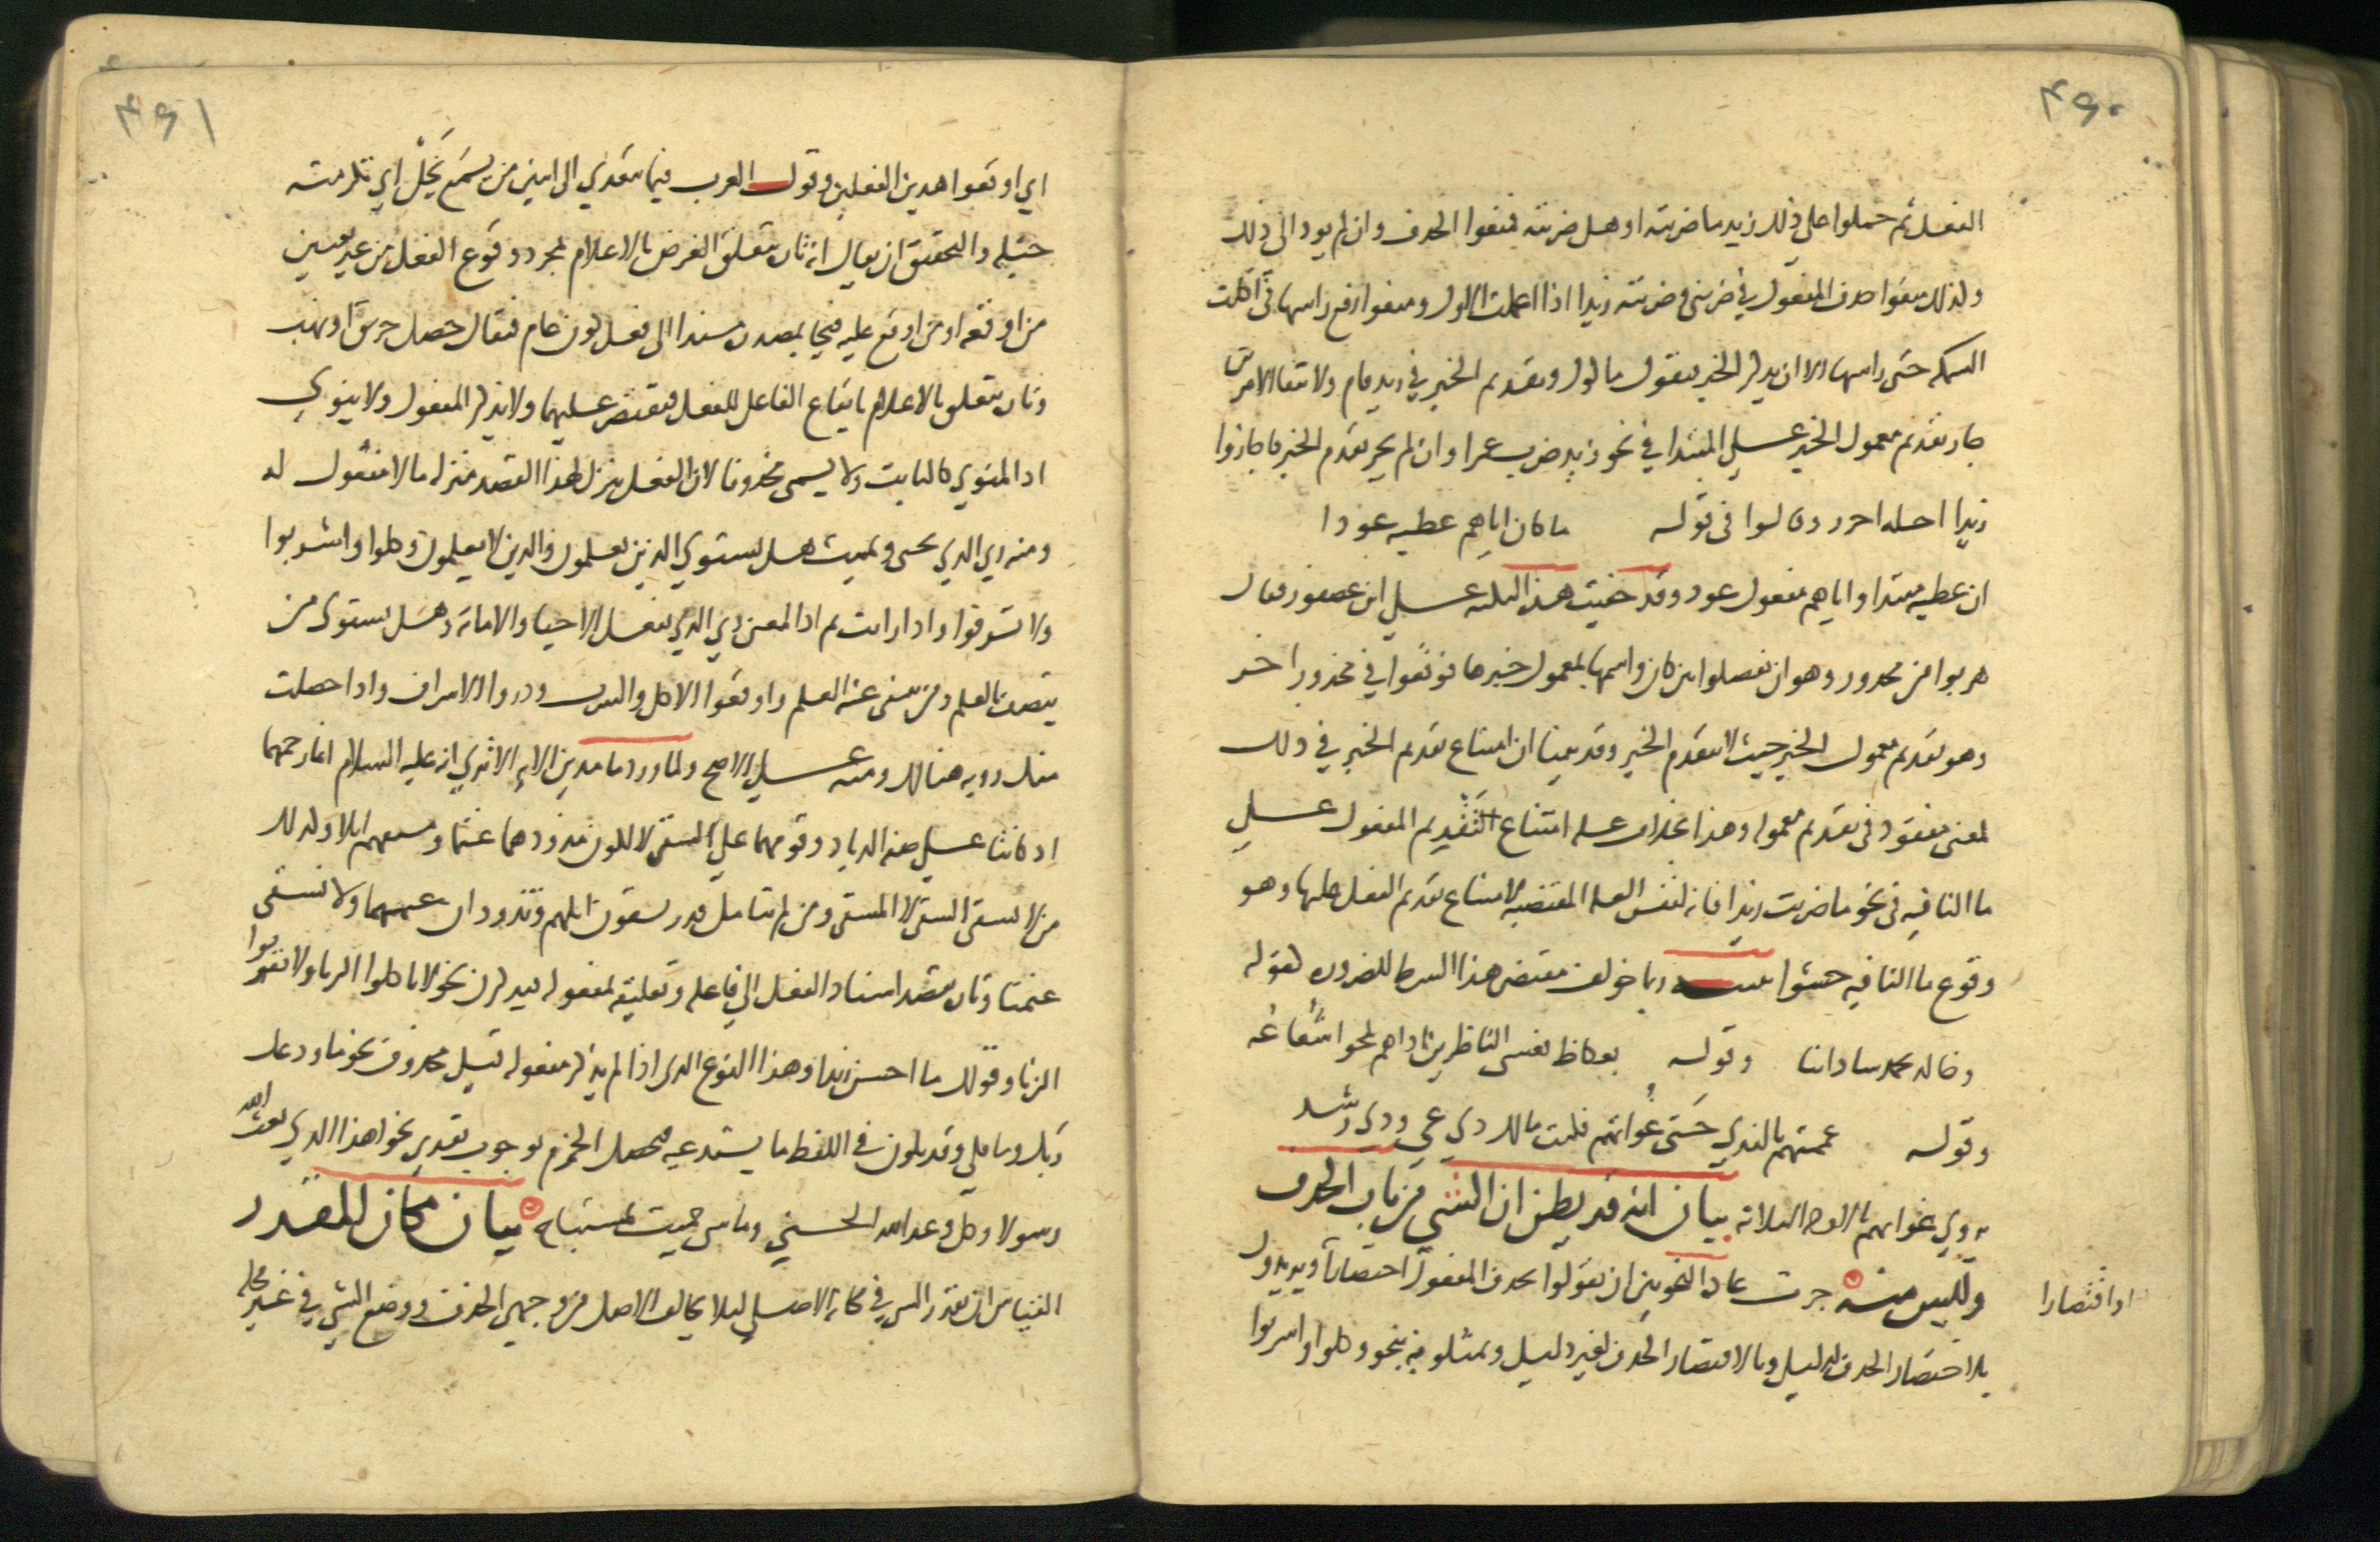 ٤٦٠
الفعل ثم حملوا على ذلك زيد ما ضربته او هل ضربته فمنعوا الحذف وان لم يود الى ذلك
ولذلك منعوا حذف المفعول في ضربني وضربته زيدا اذا اعملت الاول ومنعوا رفع راسها في اكلت
السمكه حتى راسها الا ان يذكر الخبر فتقول ماكول وتقديم الخبر في زيد قام ولانتفا الامرين
جاز تقديم معمول الخبر على المبتدا في نحو زيد ضرب عمرا وان لم يجز تقدم الخبر فاجازوا
زيدا اجله احرز وقالوا في قوله ما كان اياهم عطيه عودا
ان عطيه مبتدا واياهم مفعول عود وقد خفيت هذه النكته على ابن عصفور فقال
هربوا من محذور وهو ان يفصلوا بين كان واسمها بمعمول خبرها فوقعوا في محذور اخر
وهو تقديم معمول الخبر حيث لا يتقدم الخبر وقد بينا ان امتناع تقديم الخبر في ذلك
لمعنى مفقود في تقديم معموله وهذا بخلاف عله امتناع التقديم المفعول على
ما النافيه في نحو ما ضربت زيدا فانه لنفس العله المقتضيه لامتناع تقديم الفعل عليها وهو
وقوع ما النافيه حشوا تنبيه ربما خولف مقتضى هذا الشرط للضروره كقوله
وخالد يحمد ساداتنا وقوله بعكاظ يعشى الناظرين اذا هم لمحوا شعاعه
وقوله عممتهم بالندي حتى غواتهم فكنت مالك ذي غي وذي رشد
يروي غواتهم بالاوجه الثلاثه بيان انه قد يظن ان الشي من باب الحذف
وليس منه جرت عاده النحويين ان يقولوا يحذف المفعول اختصارا ويريدون
او اقتصارا
بالاختصار الحذف لدليل وبالاقتصار الحذف لغير دليل ويمثلونه بنحو وكلوا واشربوا
٤٦١
اي اوقعوا هذين الفعلين وقول العرب فيما يتعدي الى اثنين من يسمع يخل اي تكن منه
خيله والتحقيق ان يقال انه تاره يتعلق الغرض بالاعلام بمجرد وقوع الفعل من غير تعيين
من اوقعه او من اوقع عليه فيجا بمصدره مسندا الى فعل كون عام فيقال حصل حريق او نهب
وتاره يتعلق بالاعلام بايقاع الفاعل للفعل فيقتصر عليهما ولا يذكر المفعول ولا ينوي
اذ المنوي كالثابت ولا يسمى محذوفا لان الفعل ينزل لهذا القصد منزله ما لا مفعول له
ومنه ربي الذي يحيى ويميت هل يستوي الذين يعلمون والذين لا يعلمون وكلوا واشربوا
ولا تسرفوا واذا رايت ثم اذ المعنى ربي الذي يفعل الاحيا والاماته وهل يستوى من
يتصف بالعلم ومن ينتفى عنه العلم واوقعوا الاكل والشرب وذروا الاسراف واذا حصلت
منك رويه هنالك ومنه على الاصح ولما ورد ما مدين الايه الا ترى انه عليه السلام انما رحمهما
اذ كانتا على صفه الذياد وقومهما على السقى لا لكون مذودهما غنما ومسقيهم ابلا وكذلك
من لا نسقى السقى لا المسقى ومن لم يتامل قدر يسقون ابلهم وتذودان غنمهما ولا نسقى
غنمنا وتاره يقصد اسناد الفعل الى فاعله وتعليقه بمفعوله فيذكران نحو لا تاكلوا الربا ولا تقربوا
الزنا وقولك ما احسن زيدا وهذا النوع الذي اذا لم يذكر مفعوله قيل محذوف نحو ما ودعك
ربك وما قلى وقد يكون في اللفظ ما يستدعيه فيحصل الجزم بوجوب تقديره نحو اهذا الذي بعث الله
رسولا وكل وعد الله الحسنى وما شي حميت بمستباح بيان مكان المقدر
القياس ان يقدر الشي في مكانه الاصلي ليلا يخالف الاصل من وجهين الحذف ووضع الشي في غير محله